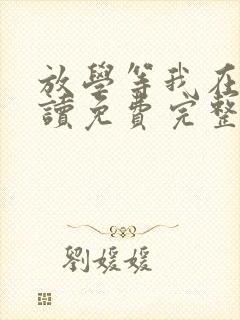 放學等我在
讀免費完整
劉媛媛